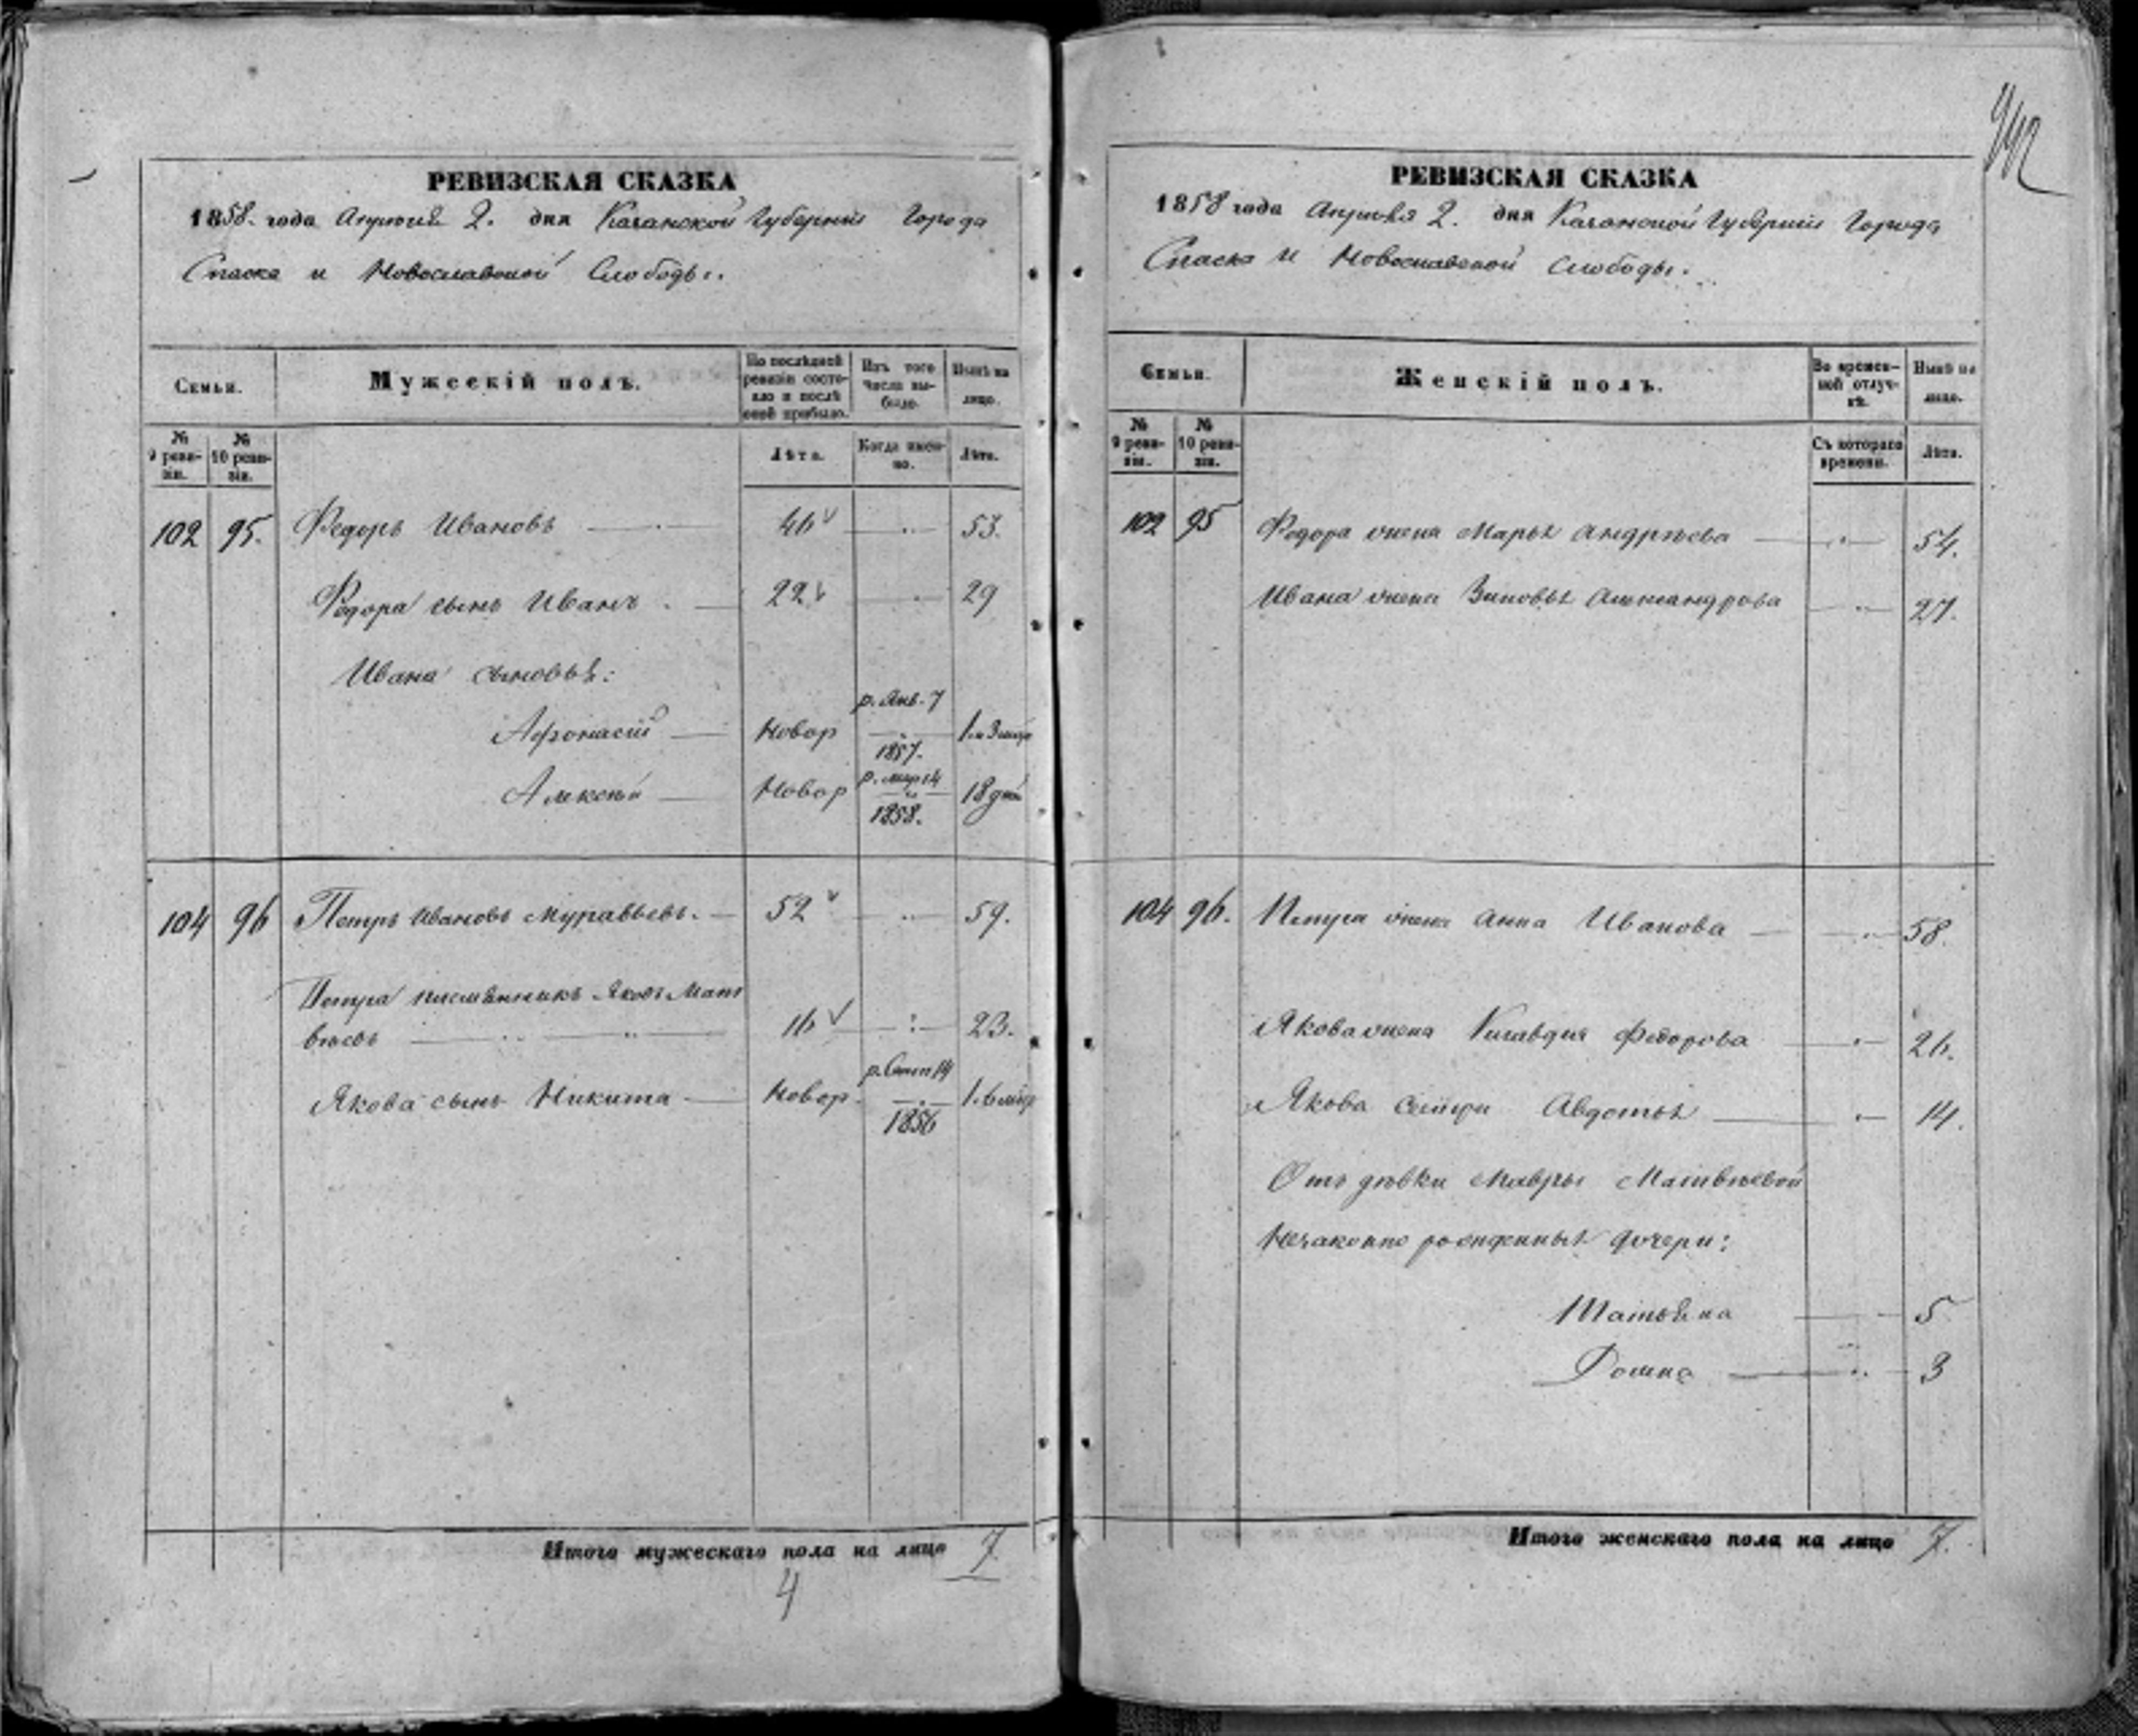 РЕВИЗСКАЯ СКАЗКА
1858. года Апреля 2. дня Казанской Губернии Города
Спаска и Новоспавской Слободы.
Семьи.
Мужескій полъ.
По послѣдней ревизіи состояло и послѣ оной прибыло.
Изъ того числа выбыло.
Нынѣ на лицо.
№ 9 ревизіи.
№ 10 ревизіи.
Лѣта.
Когда именно.
Лѣта.
102 95. Федоръ Ивановъ 46 53.
Федора сынъ Иванъ 22 29
Ивана сыновья:
р. Янв. 7
Афонасій Новор 1857. 1. и 3 мѣц
р. мар 14
Алексѣй Новор 1858. 18 дней
104 96 Петръ Ивановъ Муравьевъ. 52 59.
Петра племянникъ Яковъ Мат
вѣевъ 16 23.
р. Сент 14
Якова сынъ Никита Новор. 1856 1. 6 мѣц
Итого мужескаго пола на лицо 7.
4
442
РЕВИЗСКАЯ СКАЗКА
1858 года Апреля 2. дня Казанской Губернии Города
Спаска и Новоспавской Слободы.
Семьи.
Женскій полъ.
Во временной отлучкѣ.
Нынѣ на лицо.
№ 9 ревизіи.
№ 10 ревизіи.
Съ котораго времени.
Лѣта.
102 95 Федора жена Марья Андрѣева 54.
Ивана жена Зиновья Александрова 27.
104 96. Петра жена Анна Иванова 58.
Якова жена Клавдия Федорова 26.
Якова сестра Авдотья 14.
Отъ дѣвки Мавры Матвѣевой
Незаконно рожденныя дочери:
Татьяна 5
Домна 3
Итого женскаго пола на лицо 7.